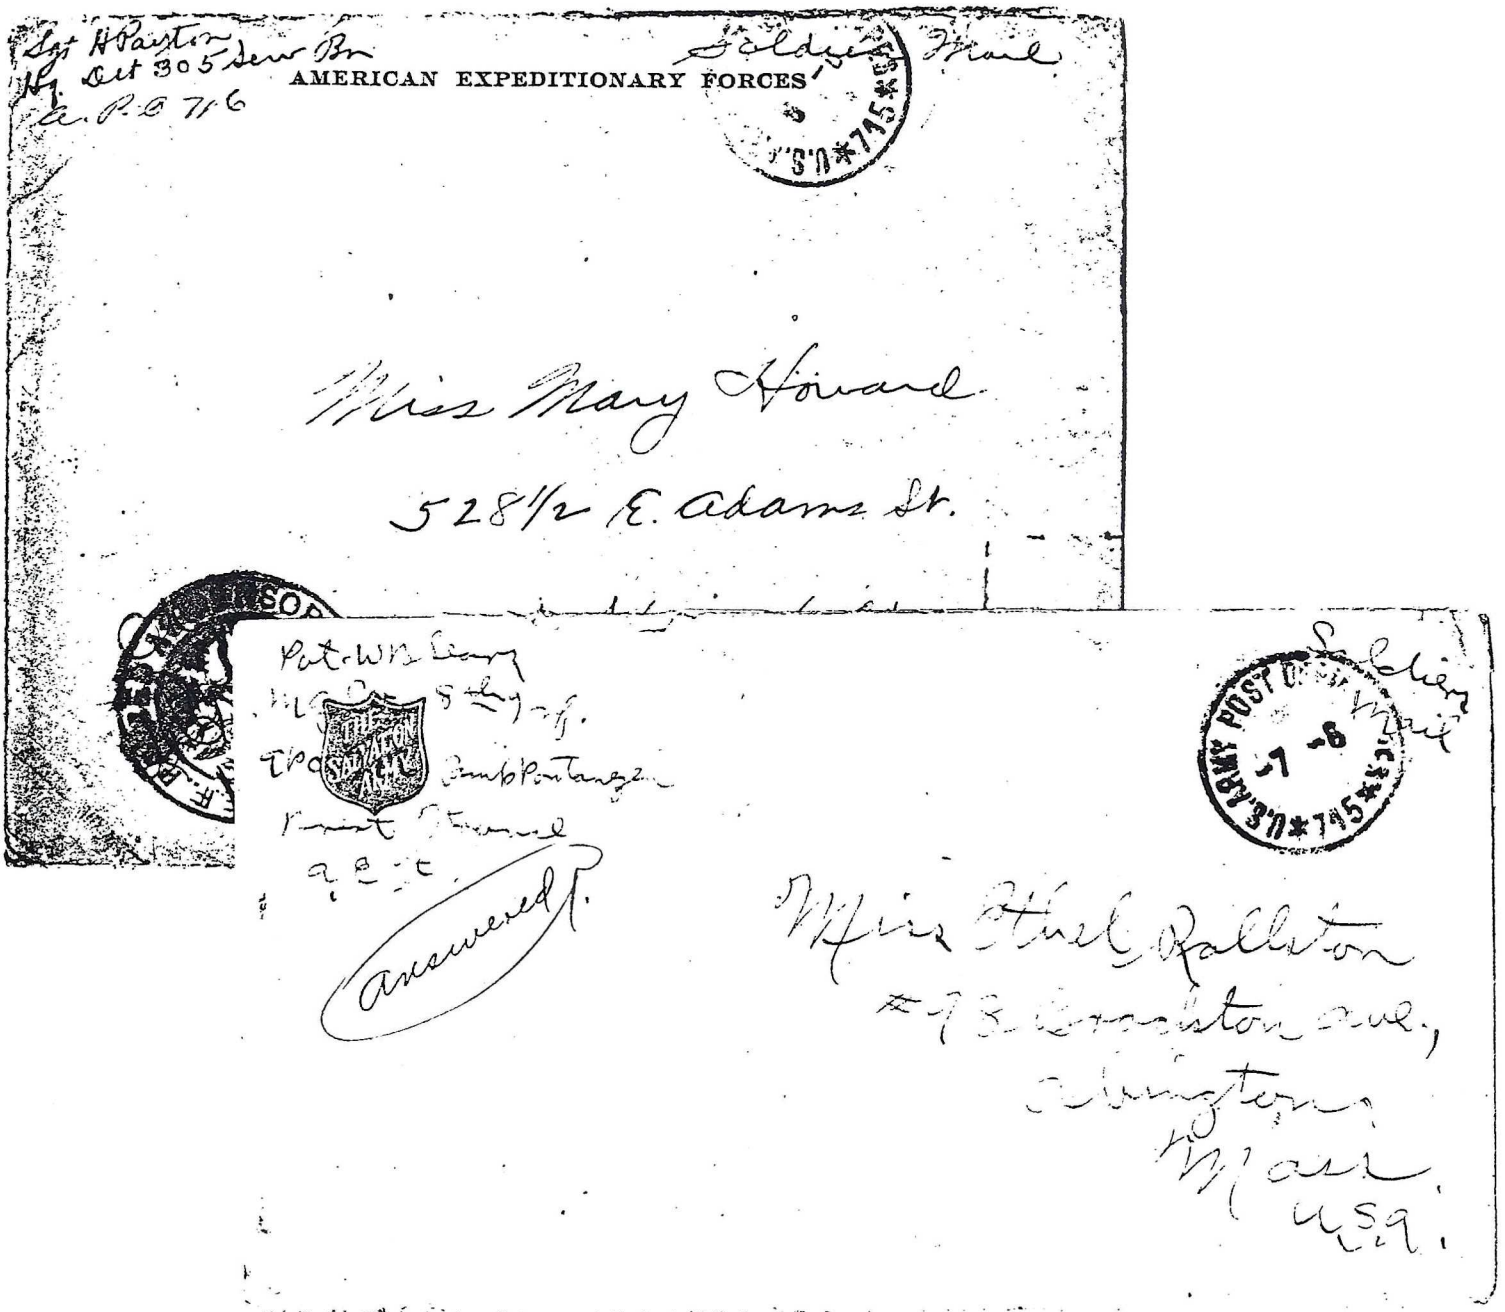 Sgt H Payton
Hq. Det 305 Serv Bn
A. P. O 716
AMERICAN EXPEDITIONARY FORCES
Soldiers Mail
U.S.A. *715*
Miss Mary Howard
528 1/2 E. Adams St.
Pvt. W B Leary
8th
THE
SALVATION
ARMY
Camp Pontanezen
Brest France
A. E. F.
answered
Soldiers
Mail
U.S. ARMY POST OFFICE *715*
-7 -6
Miss Ethel Rallston
Ave.,
Abington,
Mass.
U.S.A.